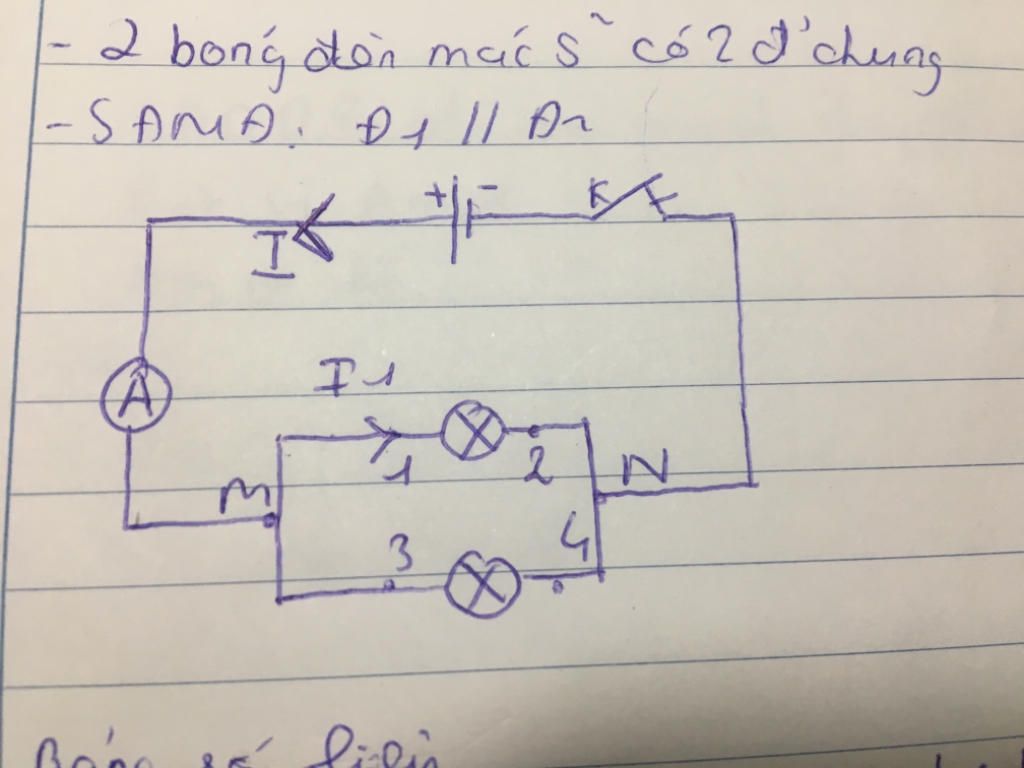 - 2 bóng đèn mắc s~ có 2 đ' chung
- SĐMĐ: Đ1 // Đ2
+ -
K
I
A
I1
1 2 N
M
3 4
Bảng số liệu